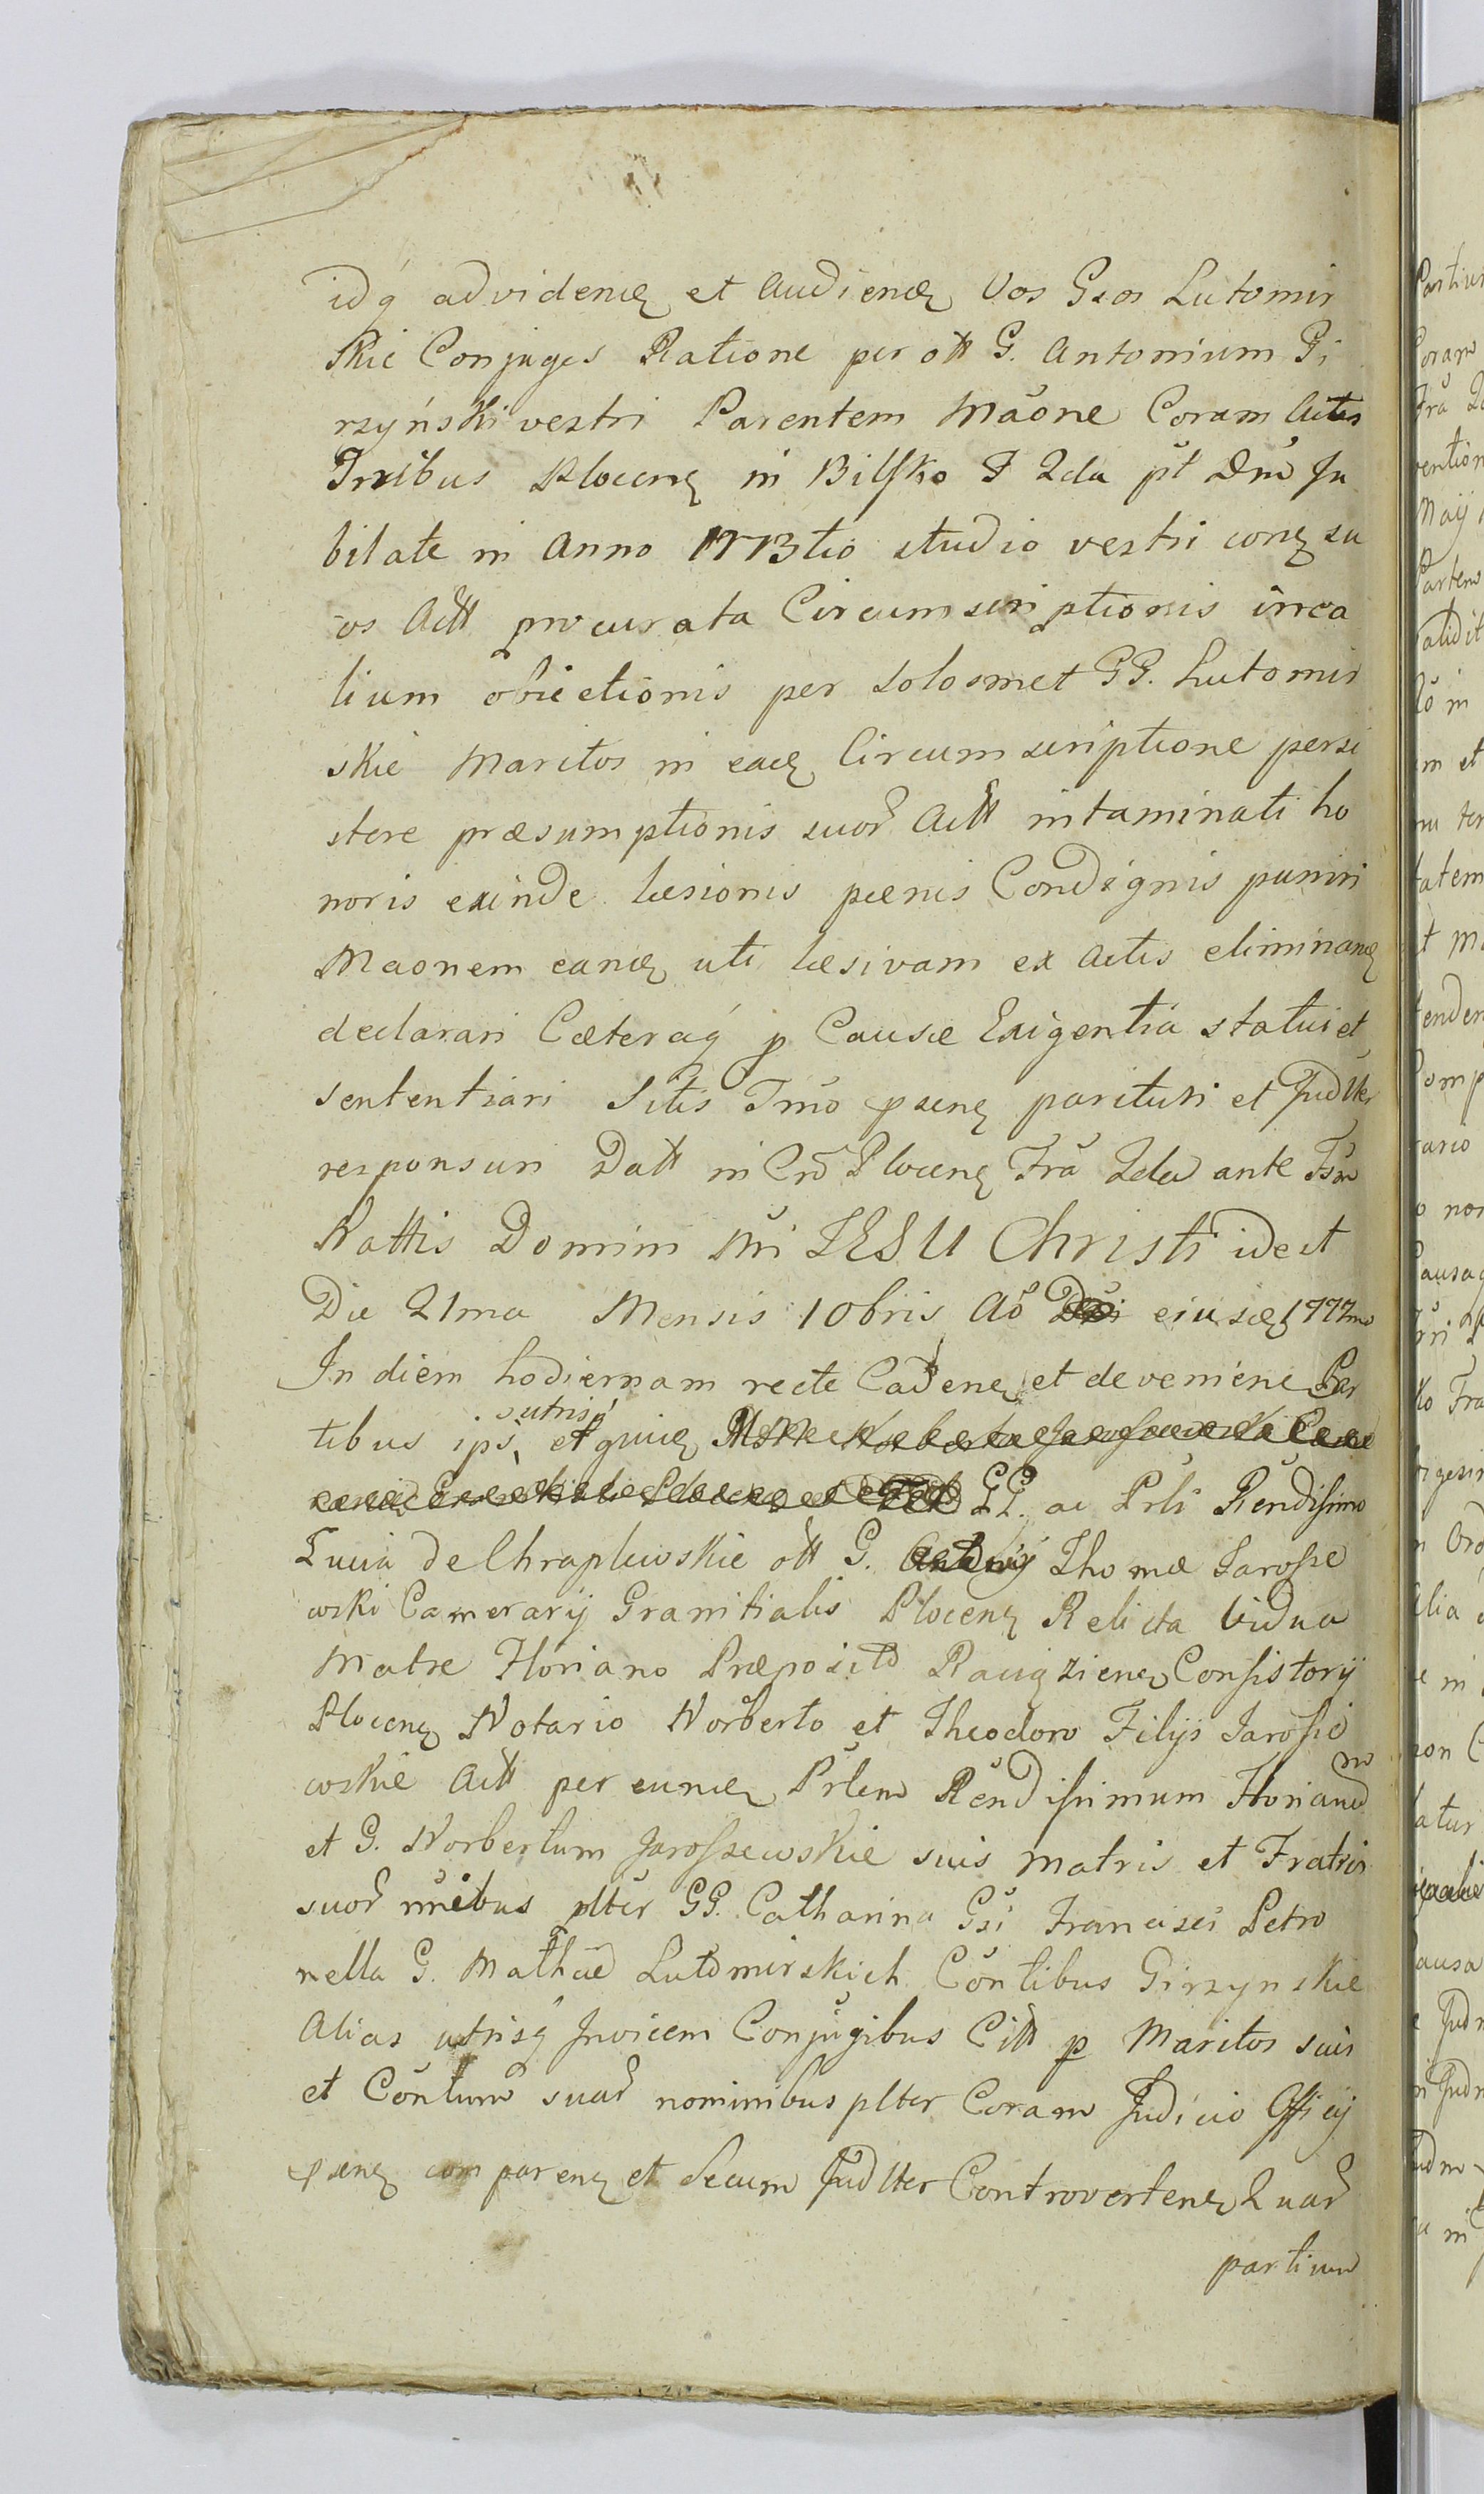 idq́ advidenꝫ et Audienꝫ Vos Gsos Lutomir
skie Conjuges Ratione per ott G. Antonium Gi
rzyński vestri Parentem Mãone Coram Actis
Trrĩbus Plocenꝫ in Bilsko F 2da pt Dm̃ Ju
bilate in Anno 1773tio studio vestri conꝫ su
os Actt procurata Circumscriptionis irrea
lium obiectionis per solosmet GG. Lutomir
skie Maritos in eadꝫ Circumscriptione persi
stere præsumptionis suor Actt intaminati ho
noris exinde læsionis pœnis Condignis puniri
Maonem eandꝫ uti læsivam ex Actis eliminanꝫ
declarari Cæteraq́ p Causæ Exigentia statui et
sententiari Sitis Tm̃o pseneꝫ parituri et Judlter
responsuri Datt in Crõ Plocenꝫ Fr̃a 2da ante Fsm̃
Nattis Domini Nr̃i IESU Christi idest
Die 21ma Mensis 10bris Aõ eiusdꝫ 1772mo
In diem hodiernam recte Cadenꝫ et devenienꝫ Par
tibus ips̃ utrisq́ et quidꝫ
GG. ac Prlĩ Rendissimo
Lucia de Chraplewskie ott G. Thomæ Jarosze
wski Camerarij Granitialis Plocenꝫ Relicta Vidua
Matre Floriano Præposito Raciązienꝫ Consistorij
Plocenꝫ Notario Norberto et Theodoro Filijs Jarosze
wskie Actt per eundꝫ Prlẽm Rendissimum Florianum
et G. Norbertum Jaroszewskie suis Matris et Fratris
suor nr̃ibus plter GG. Catharina Gsi Francisci Petro
nella G. Mathæi Lutomirskich Cõntibus Girzynskie
Alias utrisq́ Invicem Conjugibus Citt p Maritos suis
et Cõntum suar nominibus plter Coram Judicio Officij
psenꝫ comparenꝫ et Secum Judlter Controvertenꝫ Quar
partium